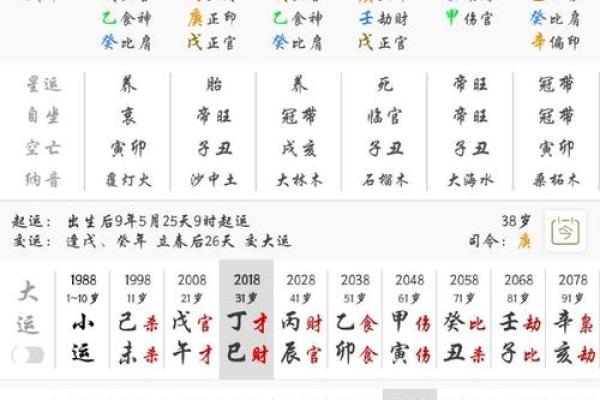 乙食神 庚正印 乙食神 壬劫财 甲伤官 癸比肩
癸比肩 戊正官 癸比肩 戊正官 辛偏印
星运 养 胎 养 死 帝旺 冠带
自坐 衰 帝旺 冠带 临官 帝旺 冠带
空亡 寅卯 子丑 戌亥 子丑 子丑 子丑
纳音 覆灯火 沙中土 大林木 石榴木 大海水 桑柘木
起运: 出生后9年5月25天9时起运 38岁
交运: 逢戊、癸年 立春后26天 交大运 司令: 庚
今
大运
1988 1998 2008 2018 2028 2038 2048 2058 2068 2078
1~10岁 11岁 21岁 31岁 41岁 51岁 61岁 71岁 81岁 91岁
小 己杀 戊官 丁才 丙财 乙食 甲伤 癸比 壬劫 辛枭
运 未杀 午才 巳财 辰官 卯食 寅伤 丑杀 子比 亥劫